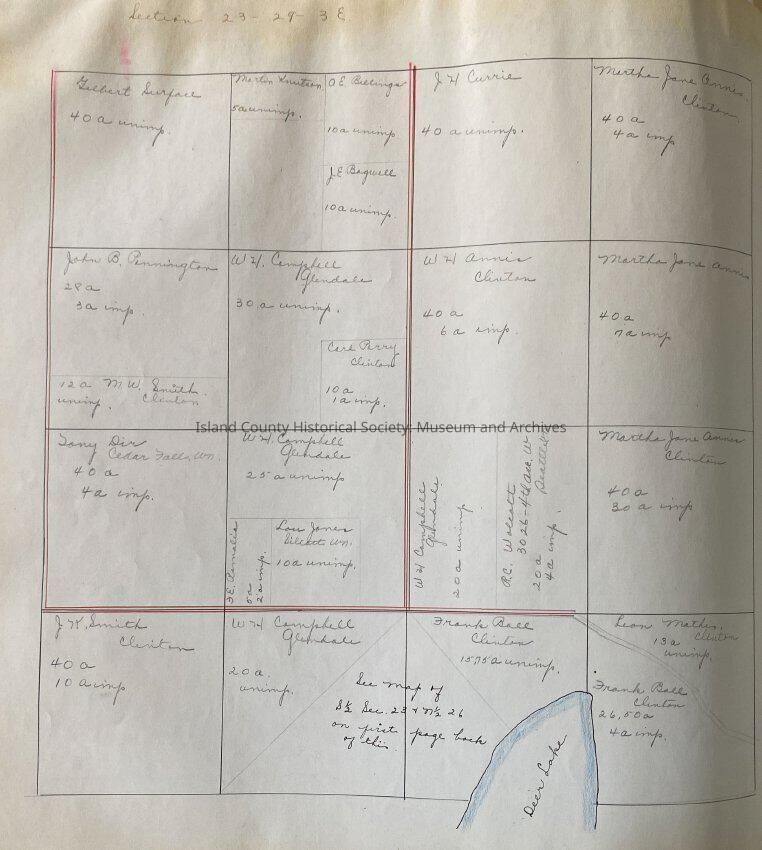 Section 23 - 29 - 3 E.
Gilbert Surface
40 a unimp.
Martin Knutson
5a unimp.
O.E. Billings
10a unimp.
J.E. Bagwell
10a unimp.
J H Currie
40 a unimp.
Martha Jane Annis.
Clinton.
40 a
4a imp
John B. Pennington
28 a
3a imp.
12 a M.W. Smith.
unimp. Clinton
W H. Campbell
Glendale
30 a unimp.
Carl Perry
Clinton
10 a
1a imp.
W H Annis
Clinton
40 a
6 a imp.
Martha Jane Annis
40 a
7a imp
Island County Historical Society: Museum and Archives
Tony Dir
Cedar Falls, Wn.
40 a
4a imp.
W H. Campbell
Glendale
25 a unimp
5a
2a imp.
Lou Jones
Wn.
10a unimp.
W H Campbell
Glendale
20 a unimp
R.C. Walcott
3026 - 4th Ave. W
Seattle
20 a
4a imp.
Martha Jane Annis
Clinton
40 a
30 a imp
J K. Smith
Clinton
40 a
10 a imp
W H Campbell
Glendale
20 a.
unimp.
See map of
S½ Sec. 23 & N½ 26
on first page back
of this.
Frank Ball
Clinton
15.75a unimp.
Leon Mathis.
Clinton
13a
unimp.
Frank Ball
Clinton
26,50a
4a imp.
Deer Lake